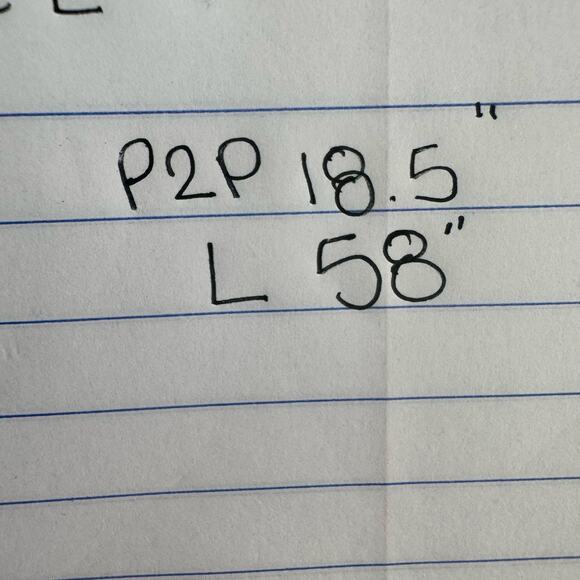 P2P 18.5"
L 58"